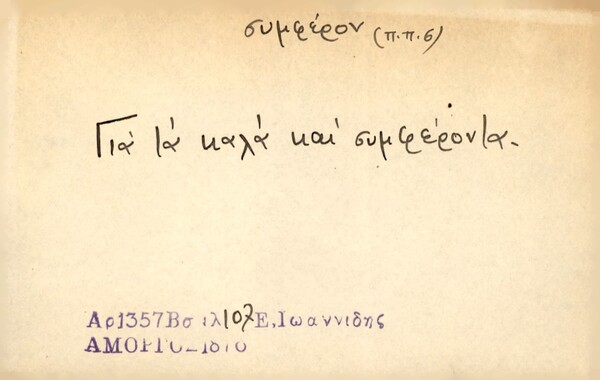 συμφέρον (π.π.6)
Γιὰ τά καλά καί συμφέροντα.
Αρ1357Βσιλ107Ε,Ιωαννιδης
ΑΜΟΡΓΟΣ 1876